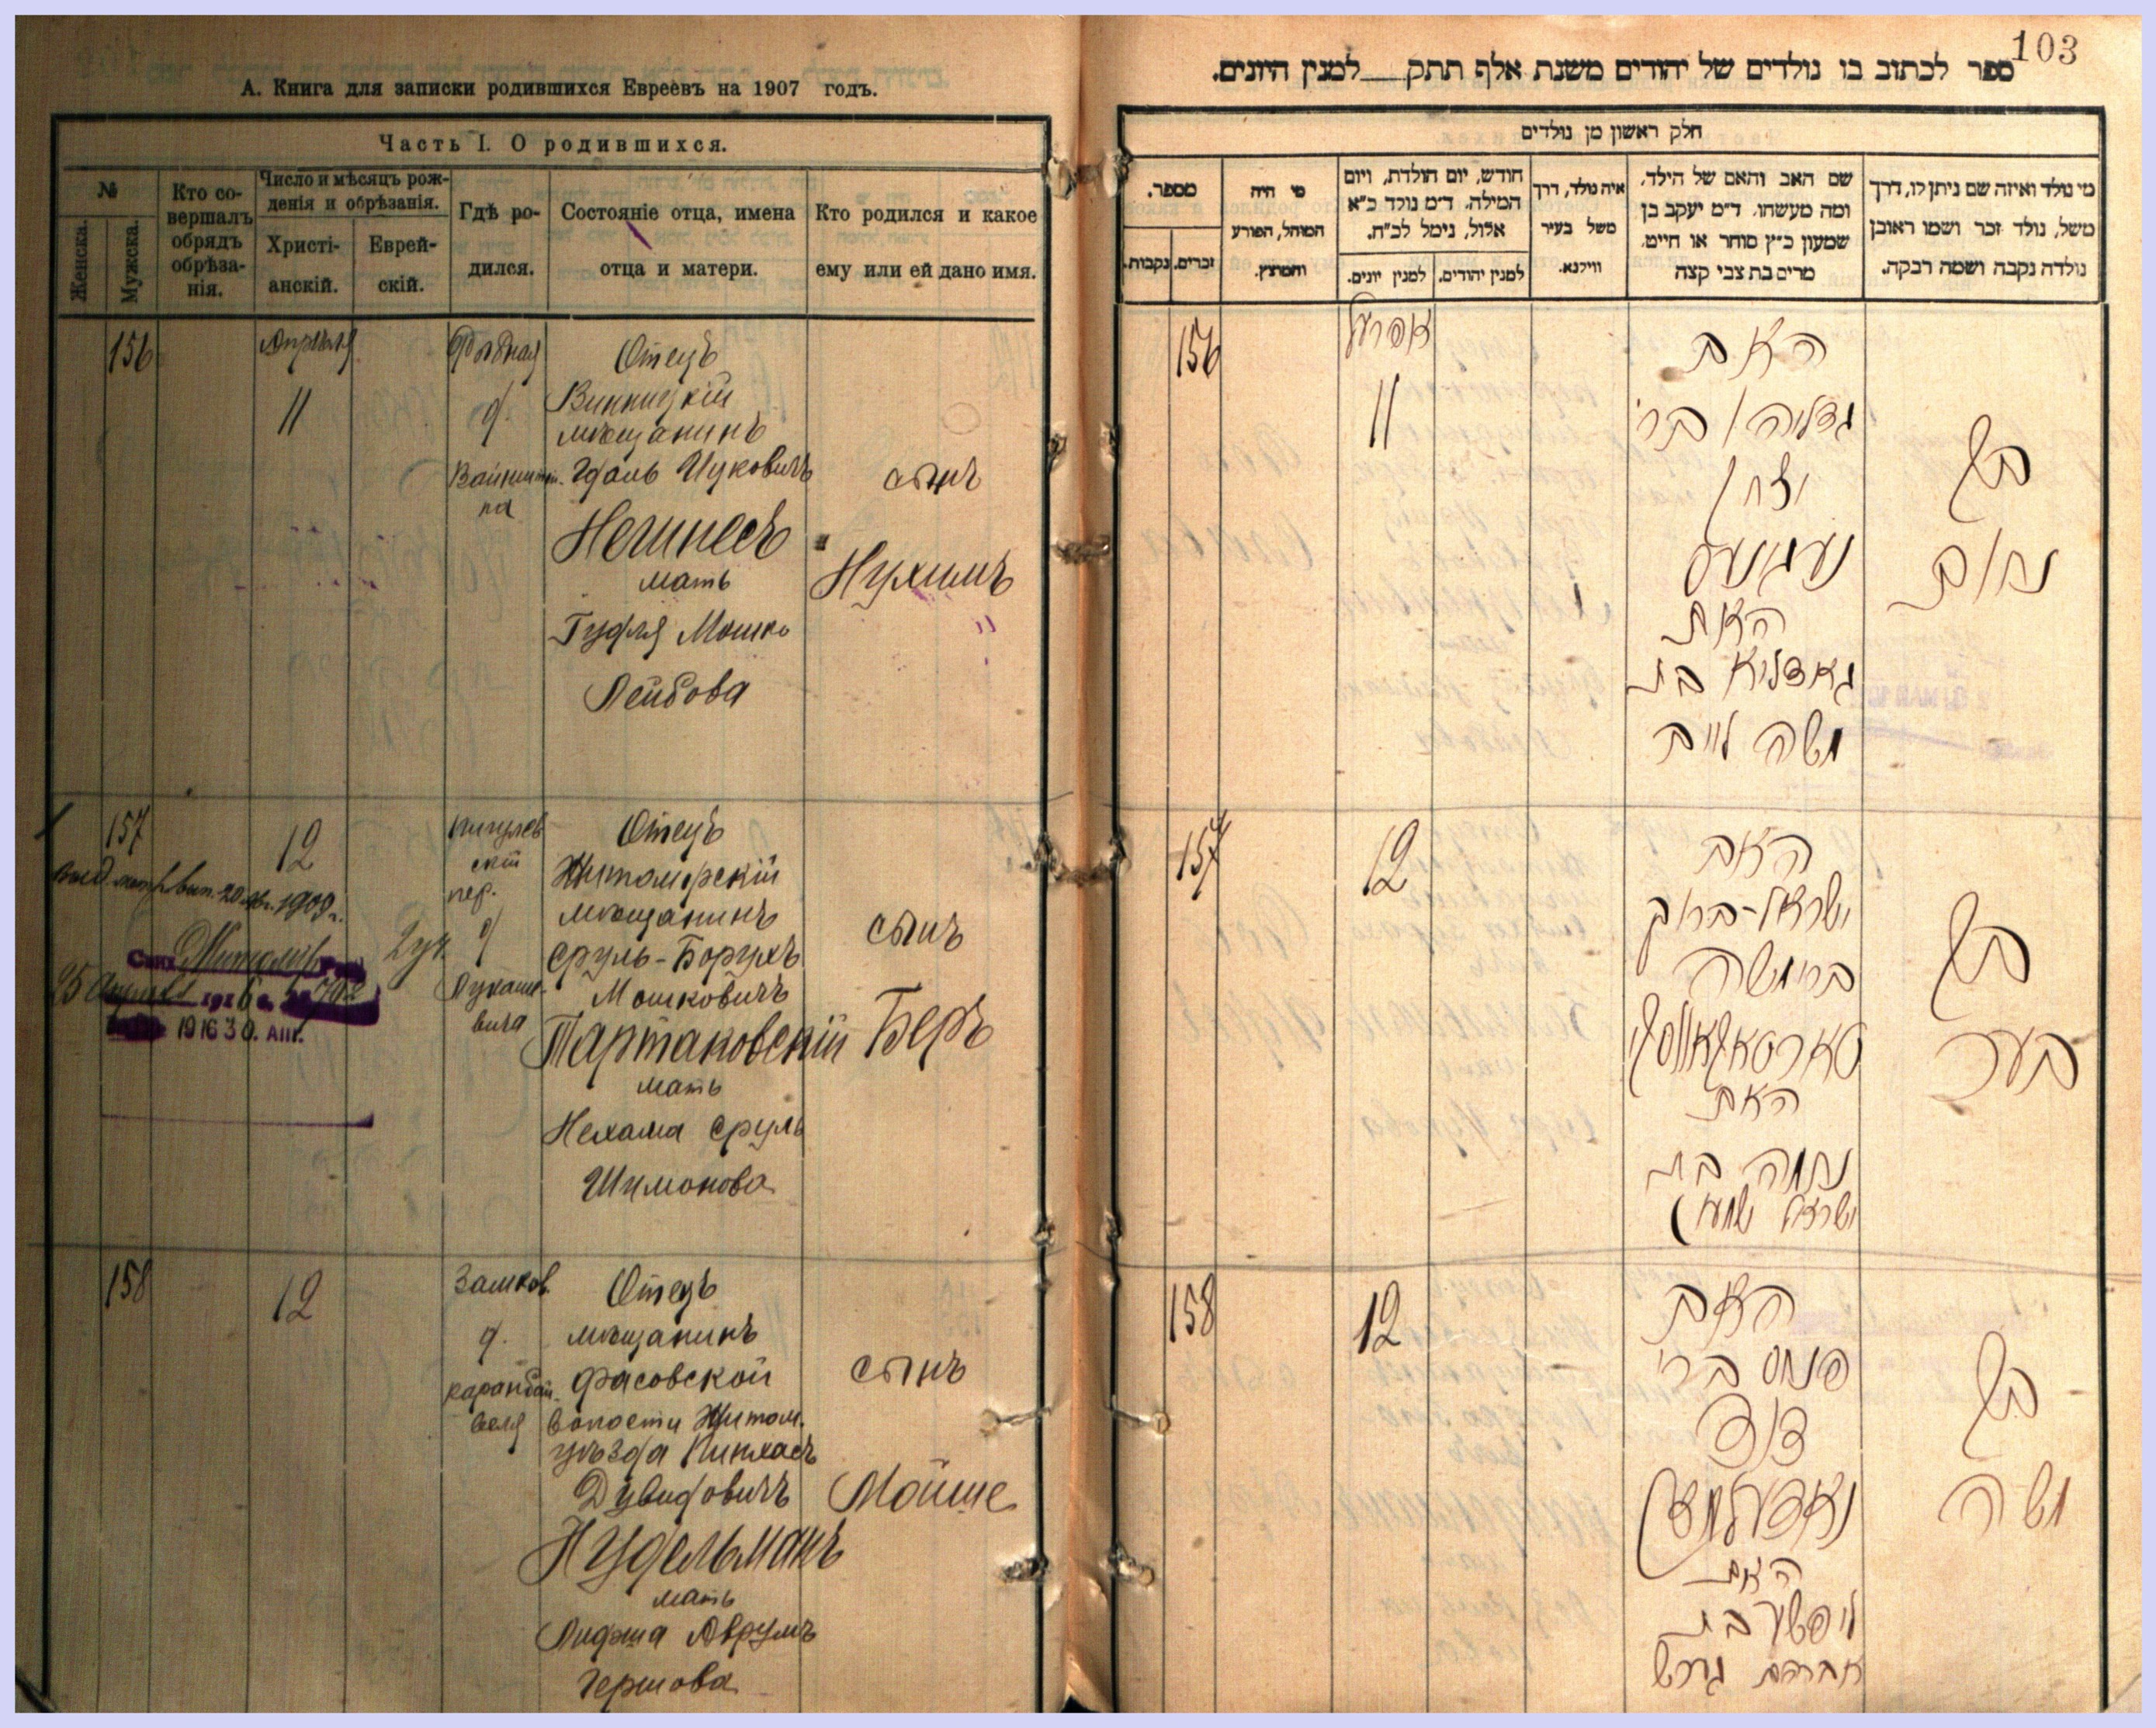 А. Книга для записки родившихся Евреевъ на 1907 годъ.
Часть I. О родившихся.
№
Женска.
Мужска.
Кто со-
вершалъ
обрядъ
обрѣза-
нія.
Число и мѣсяцъ рож-
денія и обрѣзанія.
Христі-
анскій.
Еврей-
скій.
Гдѣ ро-
дился.
Состояніе отца, имена
отца и матери.
Кто родился и какое
ему или ей дано имя.
156
Апрѣля
11
д.
Отецъ
Винницкій
мѣщанинъ
Гдаль Ицковичъ
мать
Гудля Мошко
Лейбова
сынъ
Нухимъ
157
12
пер.
д
Лукаше-
вича
Отецъ
Житомирскій
мѣщанинъ
Сруль-Борухъ
Мошковичъ
Тартаковскій
мать
Нехама Сруль
Шимонова
сынъ
Беръ
1916 30. Авг.
158
12
Замков.
д.
Отецъ
мѣщанинъ
Фасовской
волости Житом.
уѣзда Пинхасъ
Дувидовичъ
Нудельманъ
мать
Аврумъ
Гершова
сынъ
Мойше
103
ספר לכתוב בו נולדים של יהודים משנת אלף תתק__למנין היונים.
חלק ראשון מן נולדים
מי נולד ואיזה שם ניתן לו, דרך
משל, נולד זכר ושמו ראובן
נולדה נקבה ושמה רבקה.
שם האב והאם של הילד,
ומה מעשהו. ד״מ יעקב בן
שמעון כ״ץ סוחר או חייט,
מרים בת צבי קצה
איה נולד, דרך
משל בעיר
ווילנא.
חודש, יום הולדת, ויום
המילה. ד״מ נולד כ״א
אלול, נימל לכ״ח.
למנין יהודים.
למנין יונים.
מי היה
המוהל, הפורע
והמוצץ.
מספר.
זכרים.
נקבות.
156
11
האב
גדליה בר׳
יצחק
האם
בת
משה לייב
בן
נחום
157
12
האב
ישראל-ברוך
בר׳ משה
טארטאקאווסקי
האם
נחמה בת
ישראל שמעון
בן
בער
158
12
האב
פנחס בר׳
דוד
האם
בת
אברהם גרש
בן
משה